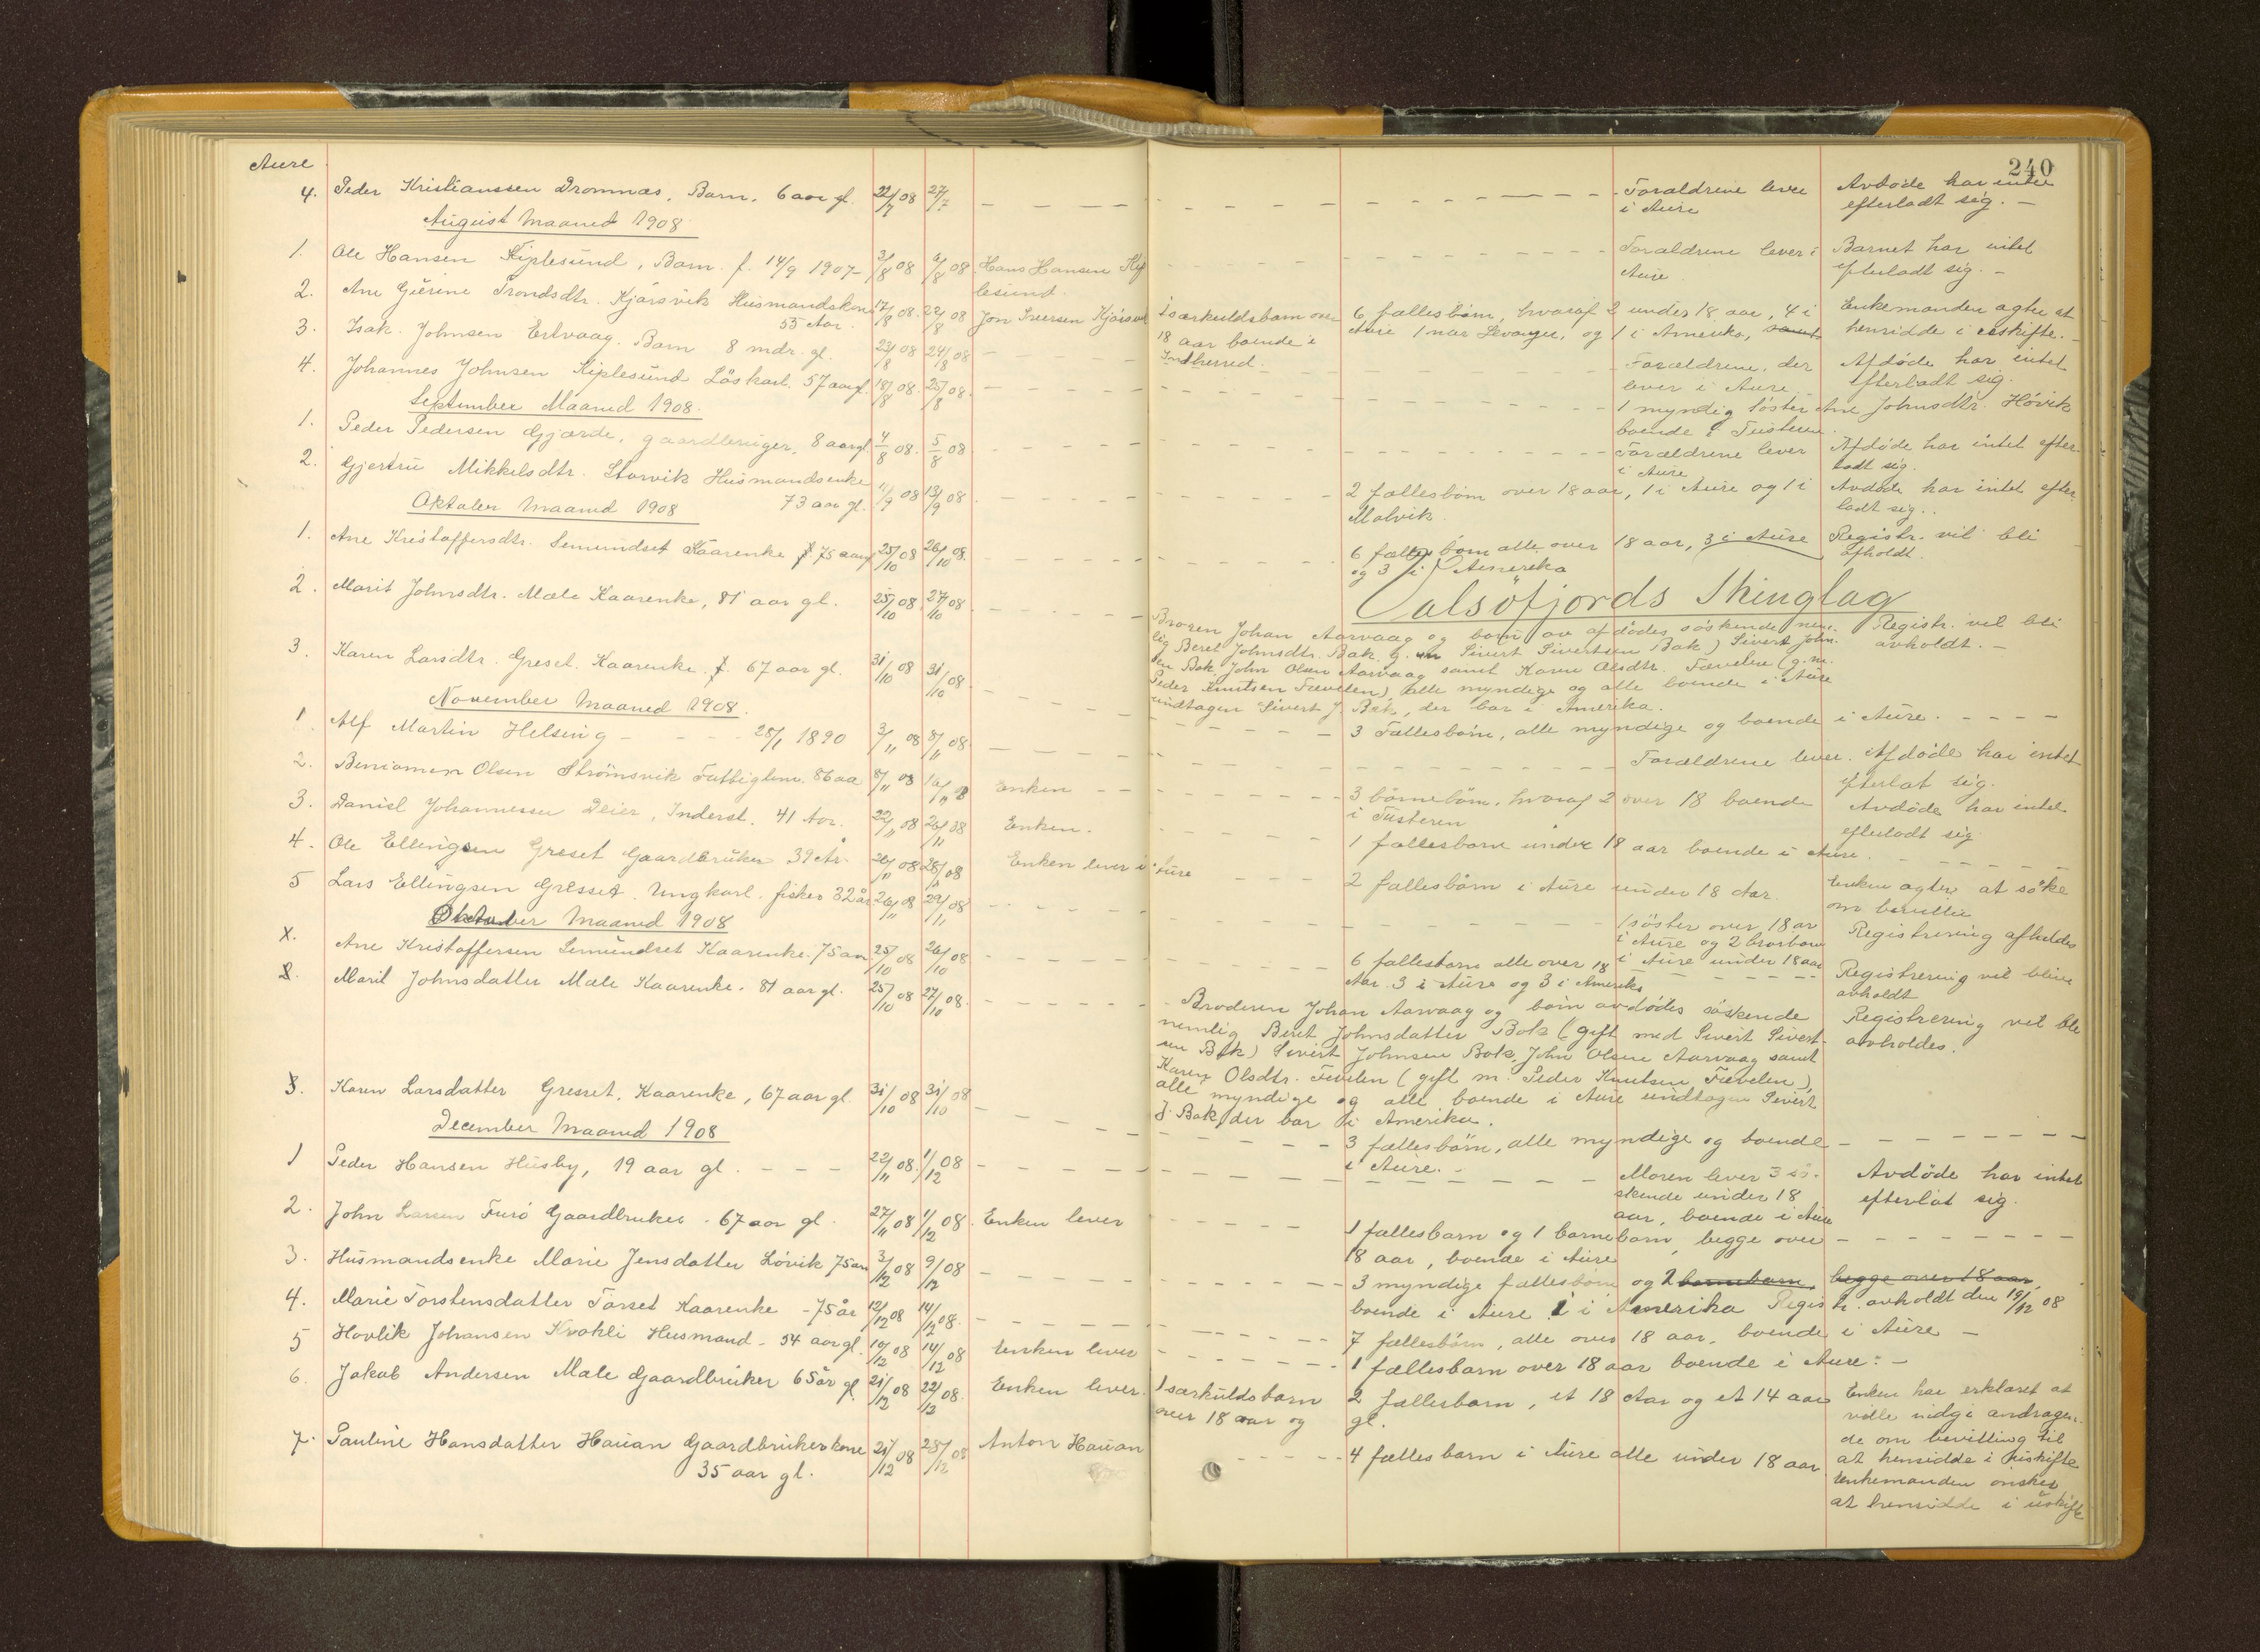 240
Aure
4. Peder Kristianssen Dromnæs, Barn, 6 aar gl. 22/7 08 27/7 Forældrene lever Avdøde har intet
i Aure efterladt sig. -
August Maaned 1908
1. Ole Hansen Kiplesund, Barn f. 14/9 1907 - 3/8 08 6/8 08 Hans Hansen Kip Forældrene lever i Barnet har intet
lesund. Aure efterladt sig. -
2. Ane Gurine Trondsdtr. Kjørsvik Husmandskone 17/8 08. 22/8 08 Jon Iversen Kjørsvik 1 særkuldsbarn over 6 fællesbørn, hvoraf 2 under 18 aar, 4 i Enkemanden agter at
55 Aar. 18 aar boende i Aure 1 nær Levanger, og 1 i Amerika, samt hensidde i uskifte. -
Indherred.
3. Isak Johnsen Ertvaag. Barn 8 mdr. gl. 23/8 08 24/8 08 Forældrene, der Afdøde har intet
lever i Aure efterladt sig.
4. Johannes Johnsen Kiplesund Løskarl. 57 aar gl. 18/8 08. 25/8 08. 1 myndig søster Ane Johnsdtr. Høvik
boende i Tusteren.
September Maaned 1908.
1. Peder Pedersen Gjærde, gaardbruger, 8 aar gl. 4/8 08. 5/8 08 Forældrene lever Afdøde har intet efter
i Aure ladt sig.
2. Gjertru Mikkelsdtr. Storvik Husmandsenke 11/9 08 13/9 08 2 fællesbørn over 18 aar, 1 i Aure og 1 i Avdøde har intet efter
73 aar gl. Malvik. ladt sig.
Oktober Maaned 1908
1. Ane Kristoffersdtr. Semundset Kaarenke 75 aar gl 25/10 08 26/10 08. 6 fællesbørn alle over 18 aar, 3 i Aure Registr. vil bli
og 3 i Amerika afholdt.
Valsøfjords Thinglag
2. Marit Johnsdtr. Mæle Kaarenke, 81 aar gl. 25/10 08 27/10 08 Broren Johan Aarvaag og børn av afdødes søskende nem- Registr. vil bli
lig Beret Johnsdtr. Bak g. m Sivert Sivertsen Bak) Sivert John- avholdt. -
sen Bak, John Olsen Aarvaag samt Karen Olsdtr. Fævelen (g. m.
Peder Knutsen Fævelen), alle myndige og alle boende i Aure
undtagen Sivert J. Bak, der bor i Amerika.
3. Karen Larsdtr. Greset. Kaarenke, 67 aar gl. 31/10 08 31/10 08. 3 Fællesbørn, alle myndige og boende i Aure.
November Maaned 1908.
1. Alf Martin Helsing - 28/1 1890 3/11 08 8/11 08. Forældrene lever. Afdøde har intet
efterlat sig.
2. Beniamen Olsen Strømsvik Fattiglem. 86 aa 8/11 08 16/11 8 Enken 3 børnebørn, hvoraf 2 over 18 boende Avdøde har intet
i Tusteren efterladt sig.
3. Daniel Johannessen Deier, Inderst, 41 Aar. 22/11 08 26/11 08 Enken. 1 fællesbarn under 18 aar boende i Aure.
4. Ole Ellingsen Greset Gaardbruker 39 År. 26/11 08 28/11 08 Enken lever i Aure 2 fællesbørn i Aure under 18 Aar. Enken agter at søke
om bevillin
5 Lars Ellingsen Gresset. Ungkarl. fisker 32 år 26/11 08 29/11 08 1 søster over 18 ar Registrering afholdes
i Aure og 2 brorbarn
i Aure under 18 aar
Oktober Maaned 1908
1. Ane Kristoffersen Semundset Kaarenke. 75 aar 25/10 08 26/10 08 6 fællesbarn alle over 18 Registrering vil blive
Aar. 3 i Aure og 3 i Amerika avholdt
2. Marit Johnsdatter Mæle Kaarenke. 81 aar gl. 25/10 08 27/10 08. Broderen Johan Aarvaag og børn avdødes søskende Registrering vil bli
nemlig Beret Johnsdatter Bak (gift med Sivert Sivert- avholdes.
sen Bak) Sivert Johnsen Bak, John Olsen Aarvaag samt
Karen Olsdtr. Fevelen (gift m. Peder Knutsen Fævelen),
alle myndige og alle boende i Aure undtagen Sivert
J. Bak, der bor i Amerika.
3. Karen Larsdatter Gresset, Kaarenke, 67 aar gl. 31/10 08 31/10 08 3 fællesbørn, alle myndige og boende
i Aure. -
December Maaned 1908
1 Peder Hansen Husby, 19 aar gl. 22/11 08. 1/12 08 Moren lever 3 sø- Avdøde har intet
skende under 18 efterlat sig.
aar, boende i Aure
2. John Larsen Furø Gaardbruker. 67 aar gl. 27/11 08 1/12 08. Enken lever 1 fællesbarn og 1 barnebarn, begge over
18 aar, boende i Aure
3. Husmandsenke Marie Jensdatter Løvik 75 aar 3/12 08 9/12 08 3 myndige fællesbørn og 2 barnebarn, begge over 18 aar,
boende i Aure 1 i Amerika Registr. avholdt den 19/12 08
4. Marie Torstensdatter Torset Kaarenke - 75 år 12/12 08 14/12 08. 7 fællesbørn, alle over 18 aar, boende i Aure -
5 Hovlik Johansen Krokli Husmand - 54 aar gl. 10/12 08 14/12 08 Enken lever 1 fællesbarn over 18 aar boende i Aure. -
6. Jakob Andersen Mæle Gaardbruker 65 år gl. 21/12 08 22/12 08. Enken lever. 1 særkuldsbarn 2 fællesbarn, et 18 Aar og et 14 aar Enken har erklæret at
over 18 aar og gl. ville indgi andragen-
de om bevilling til
at hensidde i uskifte
7. Pauline Hansdatter Hauan Gaardbrukerkone 21/12 08 28/12 08 Anton Hauan 4 fællesbarn i Aure alle under 18 aar Enkemanden ønsker
35 aar gl. at hensidde i uskifte